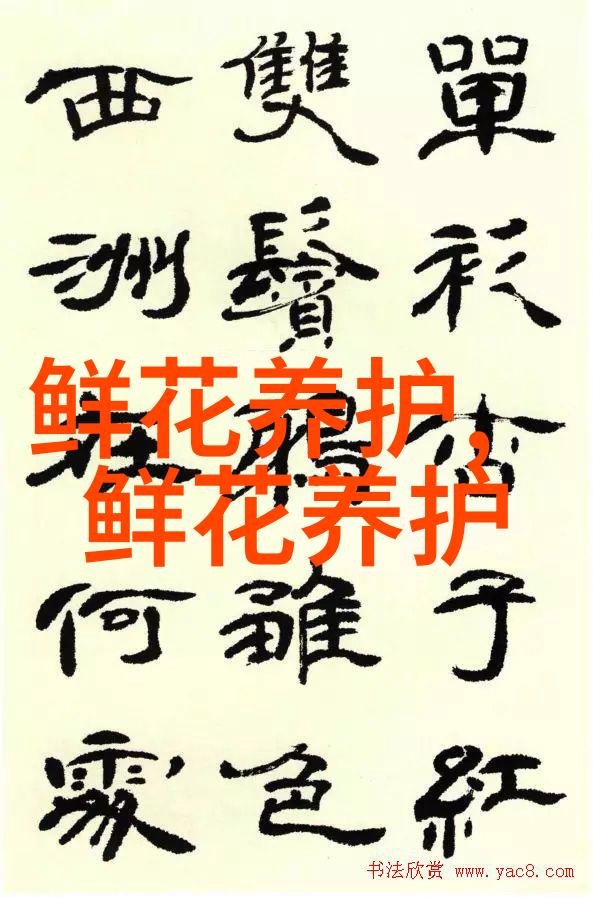 單衫杏子紅
雙鬢鴉雛色
西洲在何處
鲜花养护,
鲜花养护
书法欣赏 www.yac8.com